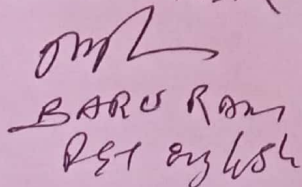 BARU RAM
PGT English